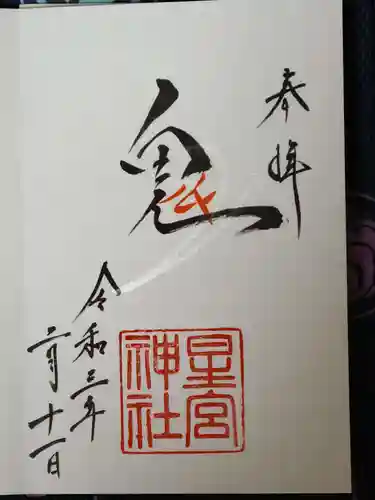 奉拝
鬼
星宮
神社
令和三年
二月十一日